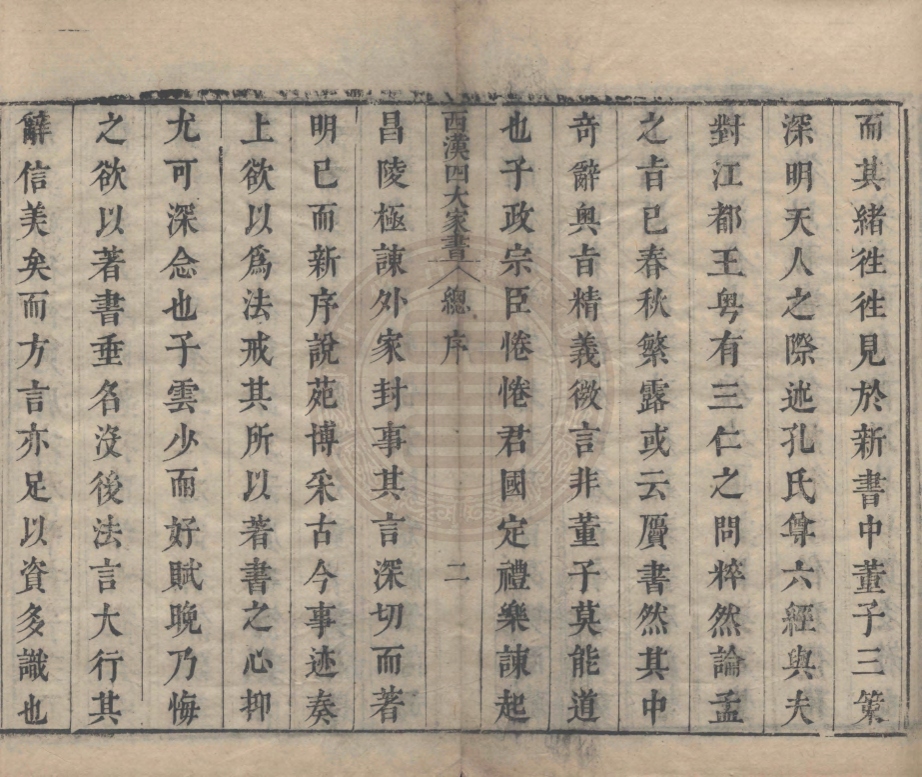 而其緒徃徃見於新書中董子三策
深明天人之際述孔氏尊六經與夫
對江都王粤有三仁之問粹然論孟
之㫖已春秋繁露或云贋書然其中
奇辭奥㫖精義微言非董子莫能道
也子政宗臣惓惓君國定禮樂諫起
西漢四大家書 總序 二
昌陵極諫外家封事其言深切而著
明已而新序說苑博采古今事迹奏
上欲以爲法戒其所以著書之心抑
尤可深念也子雲少而好賦晚乃悔
之欲以著書垂名沒後法言大行其
辭信美矣而方言亦足以資多識也